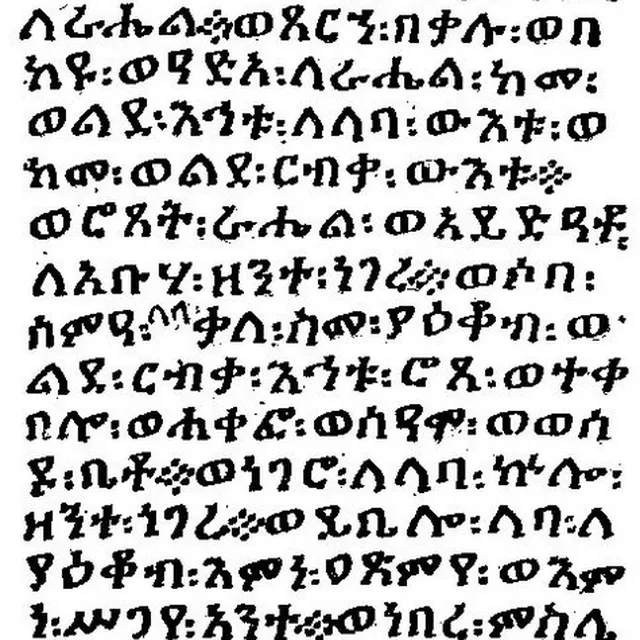 ለራሔል፨ወጸርኀ፡በቃሉ፡ወበ
ከዩ፡ወዓድአ፡ለራሔል፡ከመ፡
ወልደ፡እኅቱ፡ለላባ፡ውእቱ፡ወ
ከመ፡ወልደ፡ርብቃ፡ውእቱ፨
ወሮጸት፡ራሔል፡ወአይድዓቶ፡
ለአቡሃ፡ዘንተ፡ነገረ፨ወሶበ፡
ሰምዓ፡ቃለ፡ስመ፡ያዕቆብ፡ወ
ልደ፡ርብቃ፡እኅቱ፡ሮጸ፡ወተቀ
በሎ፡ወሐቀፎ፡ወሰዓሞ፡ወወሰ
ዶ፡ቤቶ፨ወነገሮ፡ለላባ፡ኵሎ፡
ዘንተ፡ነገረ፨ወይቤሎ፡ላባ፡ለ
ያዕቆብ፡እምነ፡ዐጽምየ፡ወእም
ነ፡ሥጋየ፡አንተ፨ወነበረ፡ምስሌ